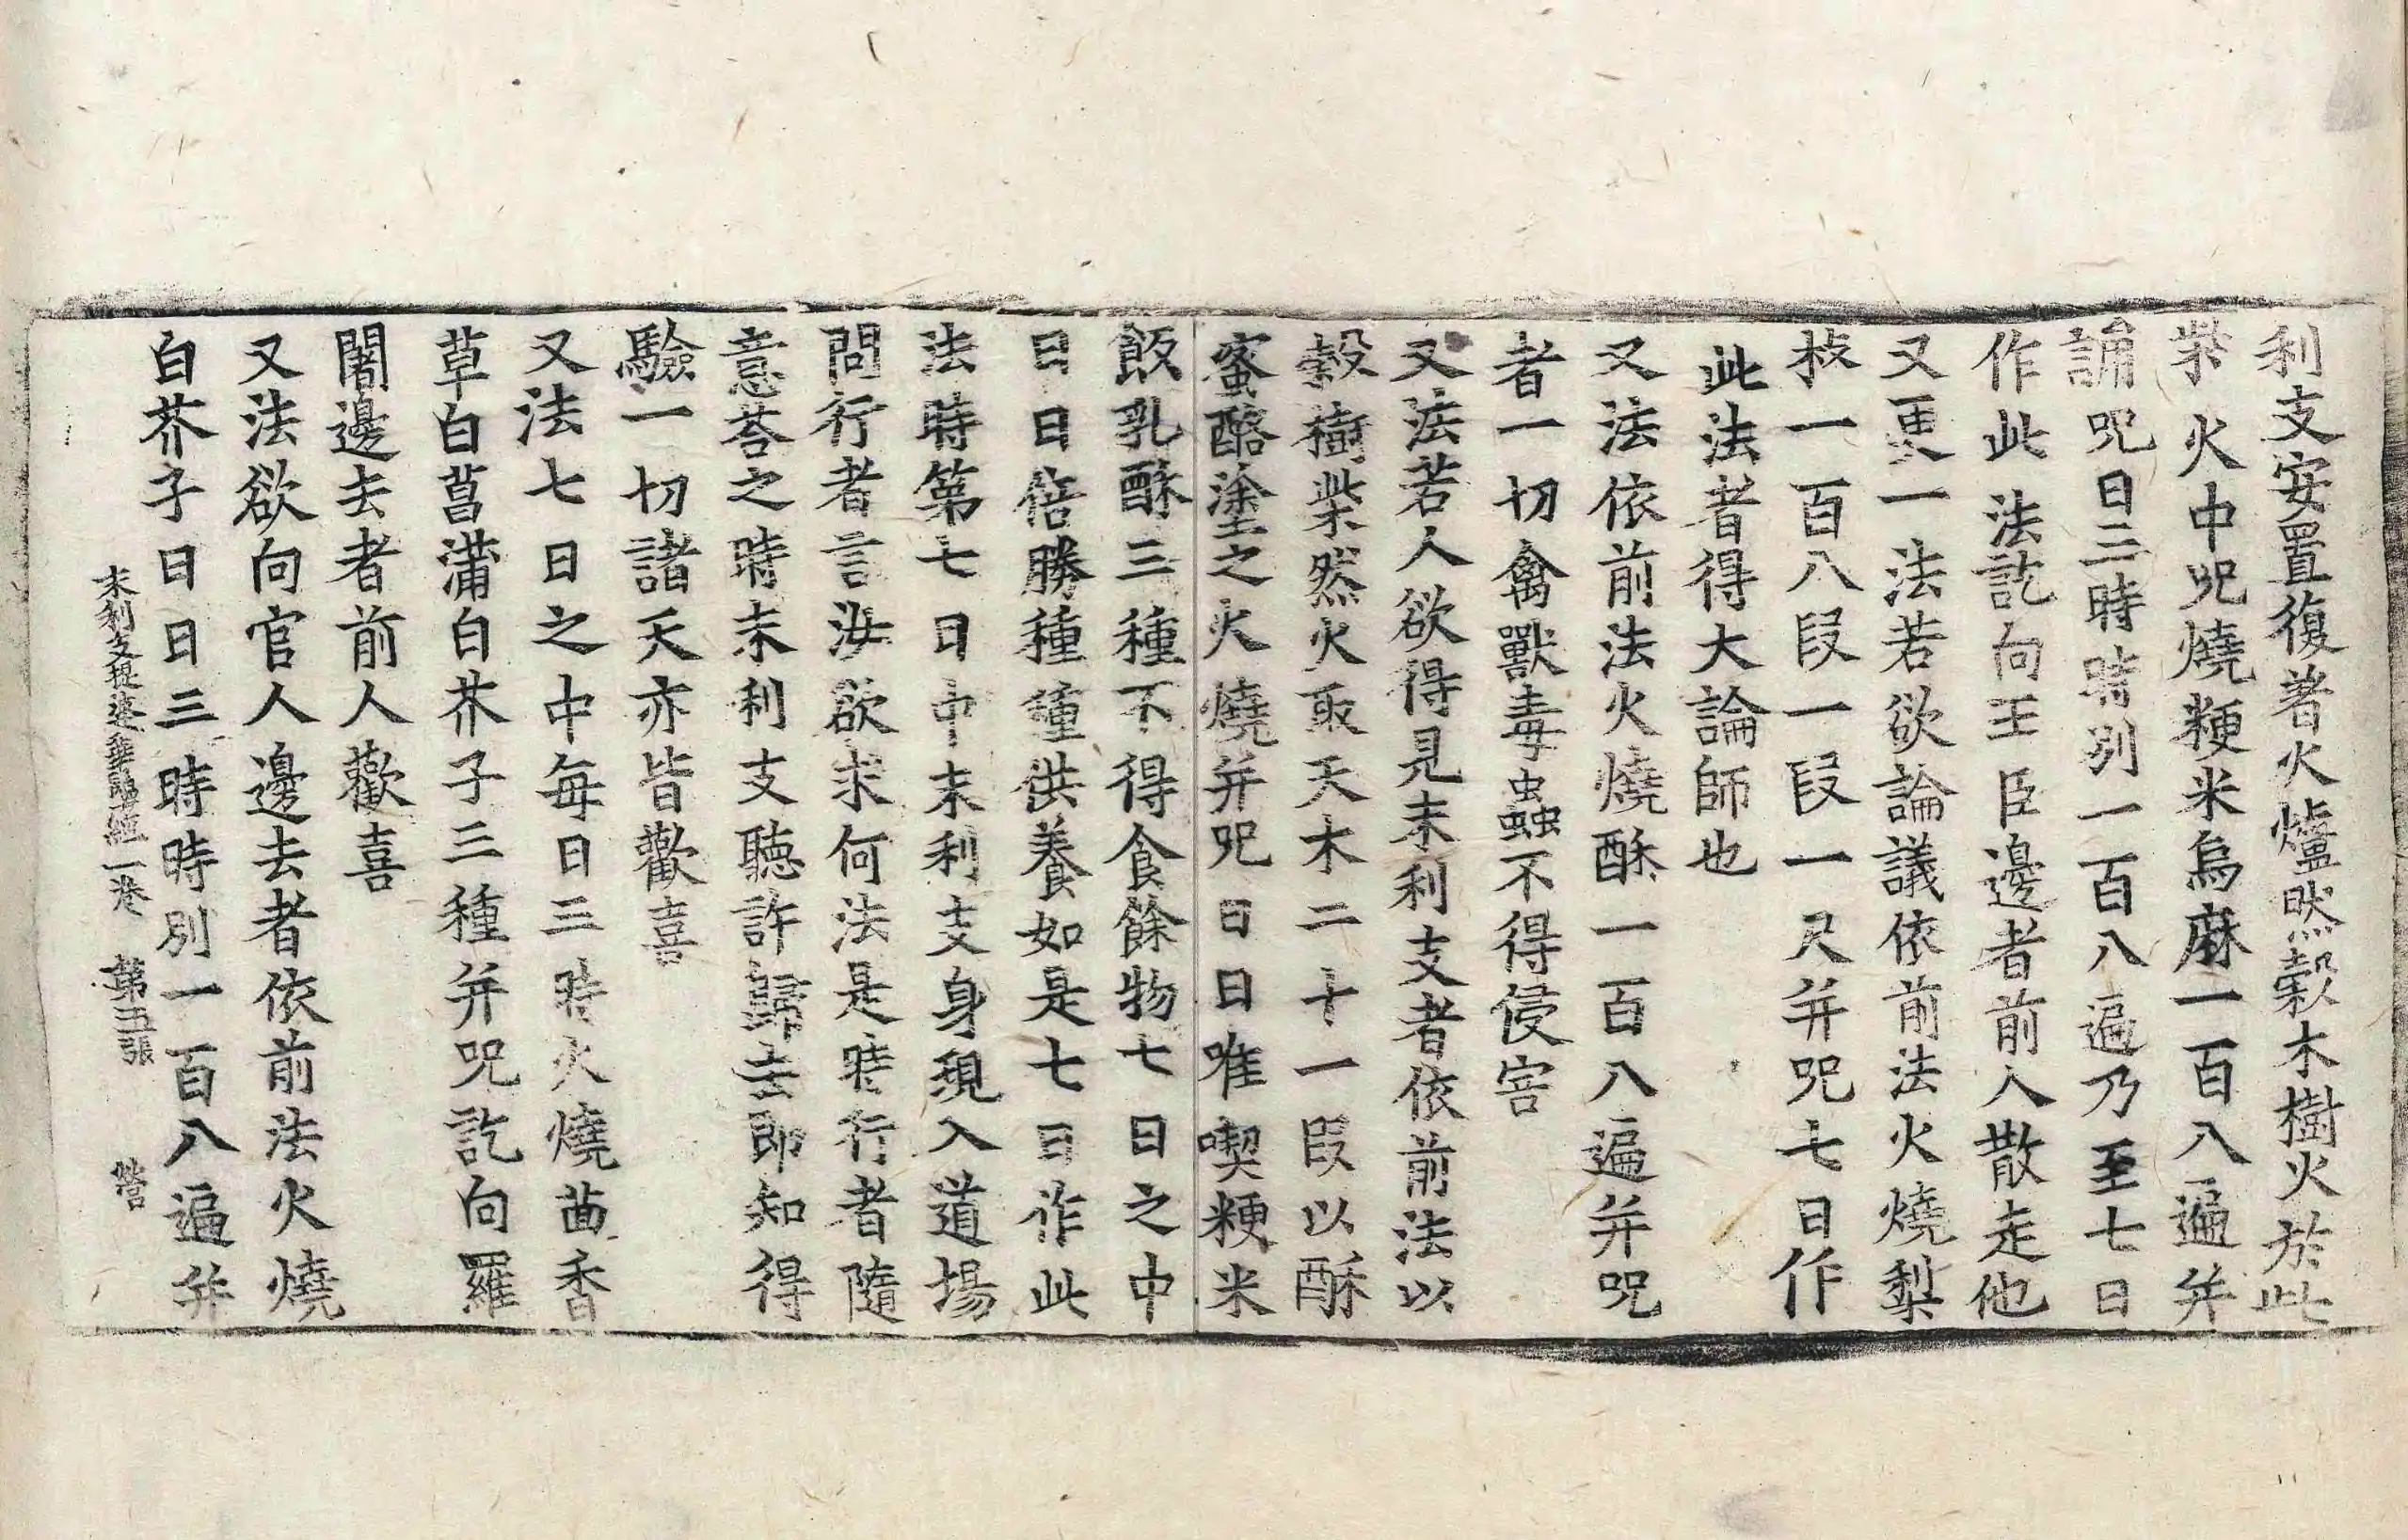 利支安置復著火爐然穀木樹火於此
柴火中呪燒粳米烏麻一百八遍并
誦呪日三時時別一百八遍乃至七日
作此法訖向王臣邊者前人散走他
又更一法若欲論議依前法火燒梨
枝一百八段一段一尺并呪七日作
此法者得大論師也
又法依前法火燒酥一百八遍并呪
者一切禽獸毒蟲不得侵害
又法若人欲得見末利支者依前法以
穀樹柴然火取天木二十一段以酥
蜜酪塗之火燒并呪日日唯喫粳米
飯乳酥三種不得食餘物七日之中
日日倍勝種種供養如是七日作此
法時第七日中末利支身現入道場
問行者言汝欲求何法是時行者隨
意荅之時末利支聽許歸去即知得
驗一切諸天亦皆歡喜
又法七日之中每日三時火燒茴香
草白菖蒲白芥子三種并呪訖向羅
闍邊去者前人歡喜
又法欲向官人邊去者依前法火燒
白芥子日日三時時別一百八遍并
末利支提婆華鬘經一卷 第五張